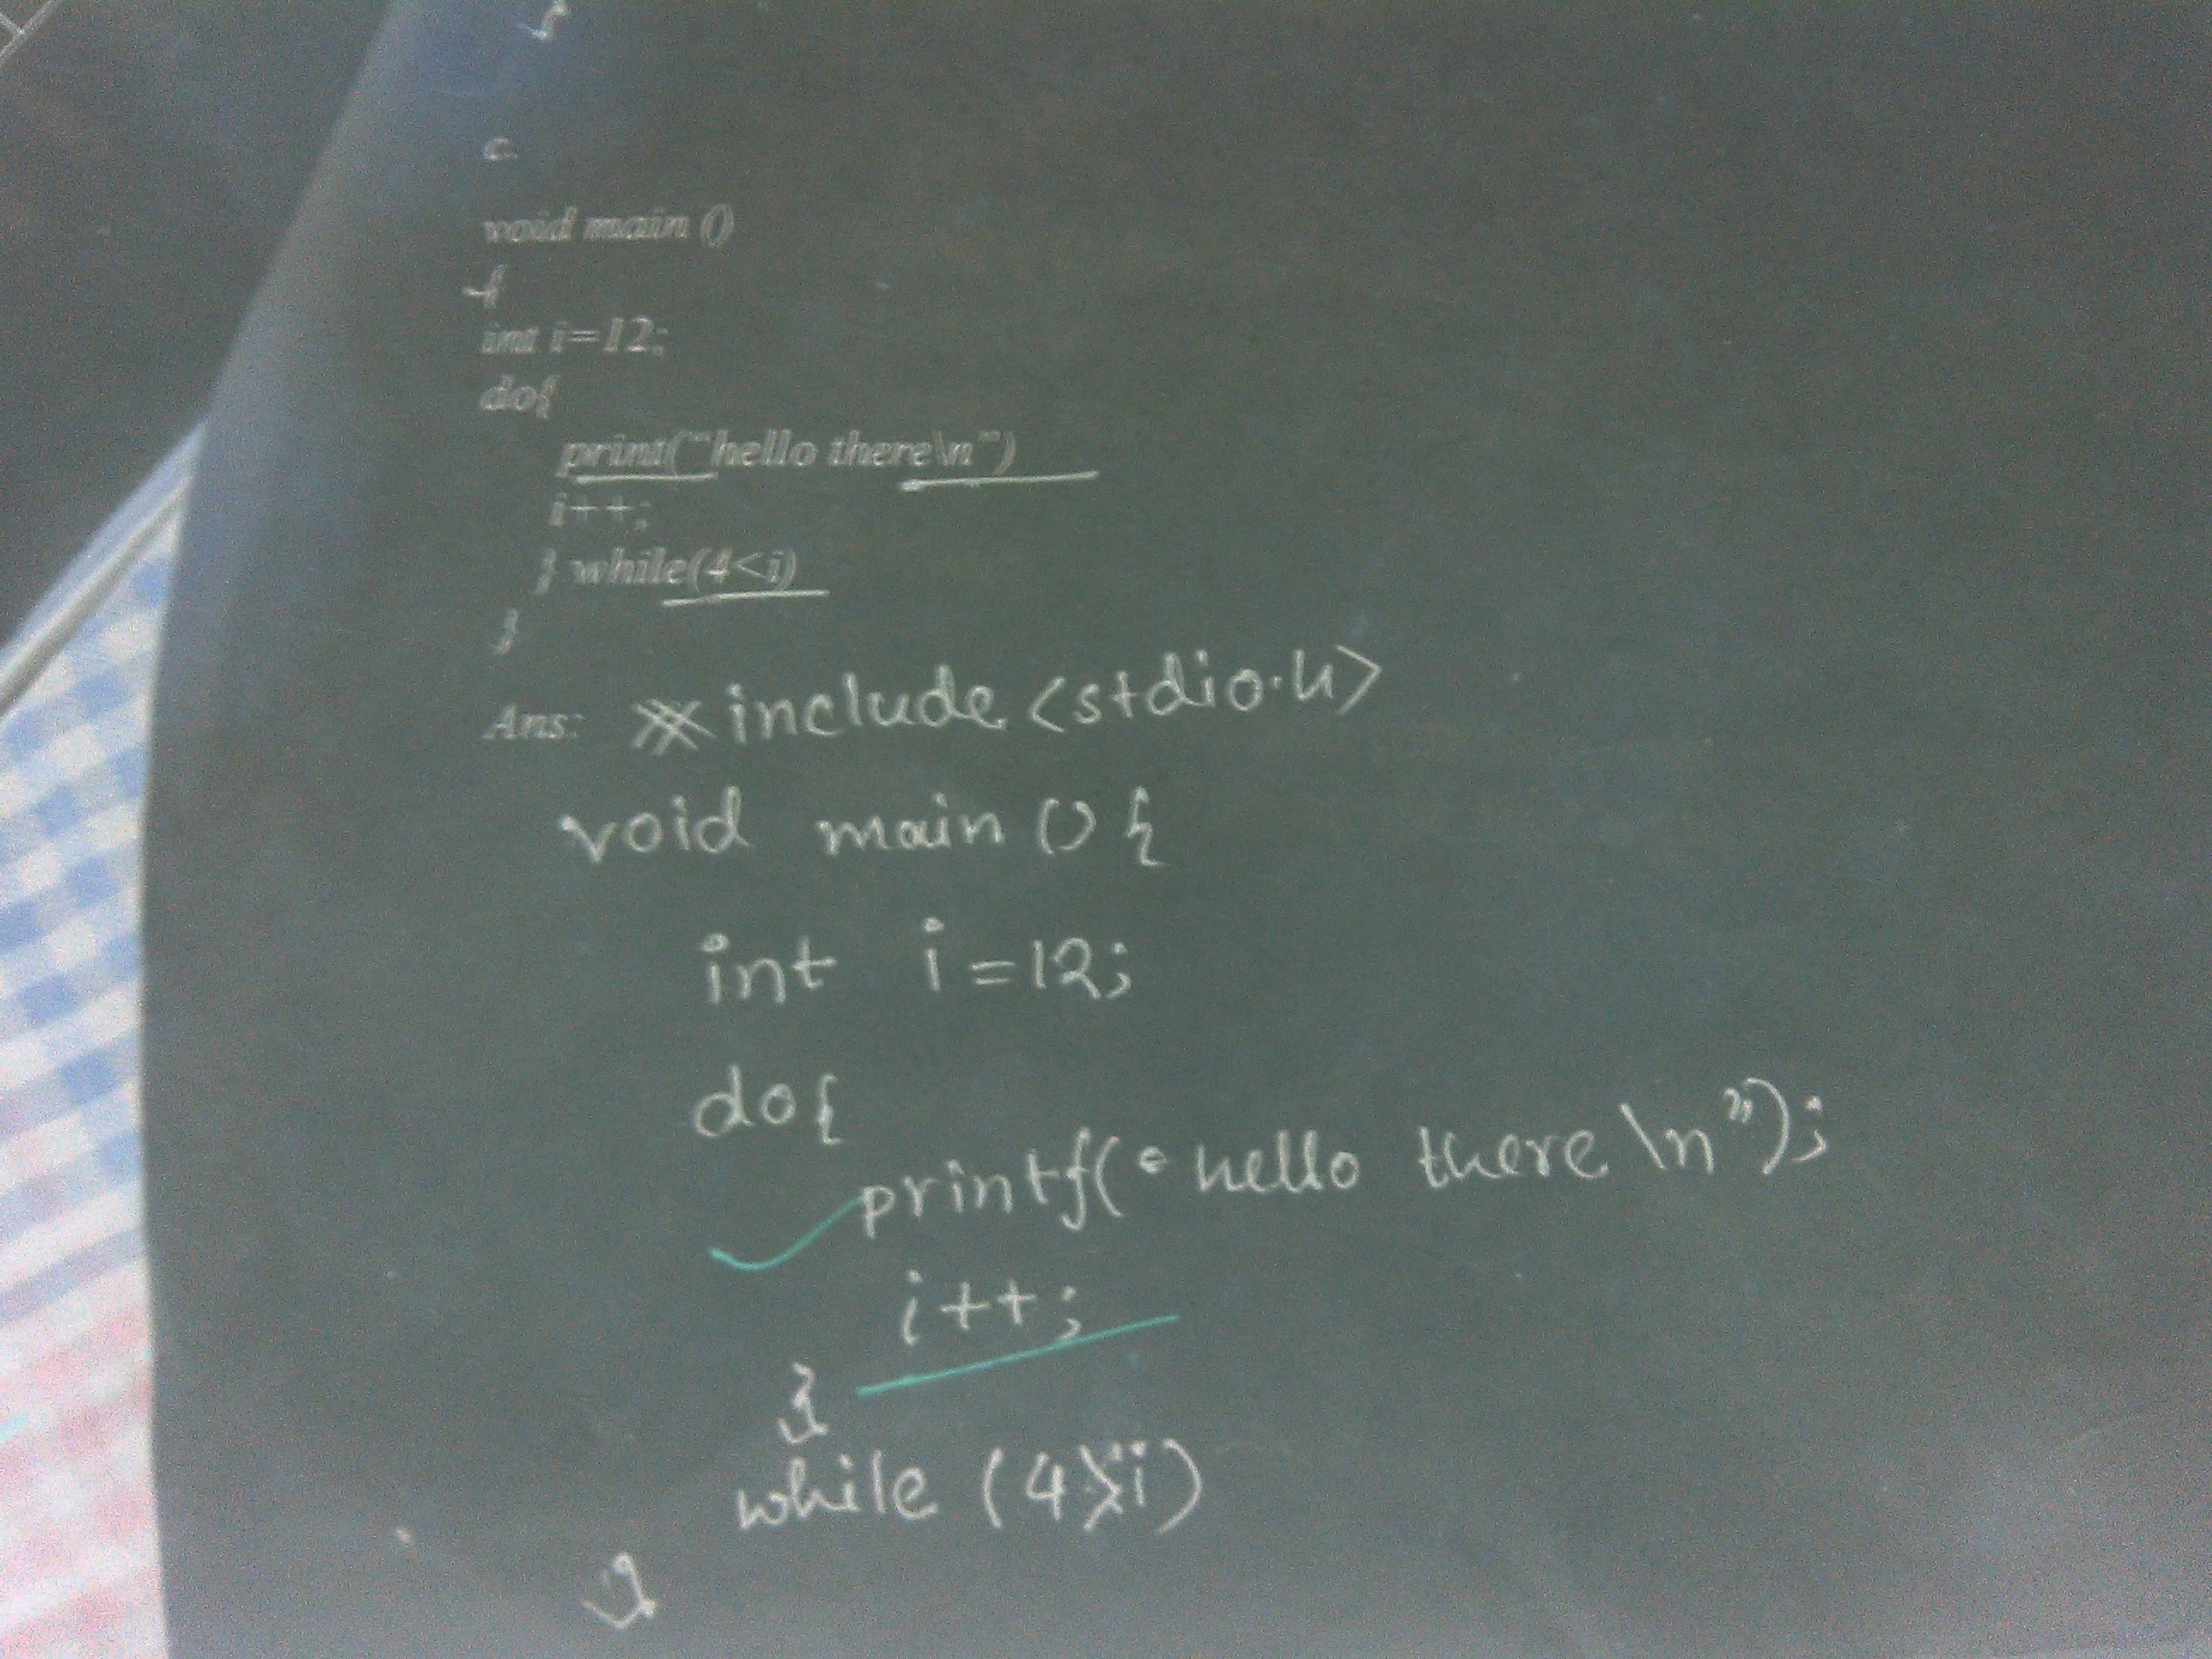 c.
void main ()
{
int i=12;
do{
print("hello there\n")
i++;
} while(4<i)
}
Ans: #include <stdio.h>
void main () {
int i=12;
do{
printf("hello there \n");
i++;
}
while (4>i)
}